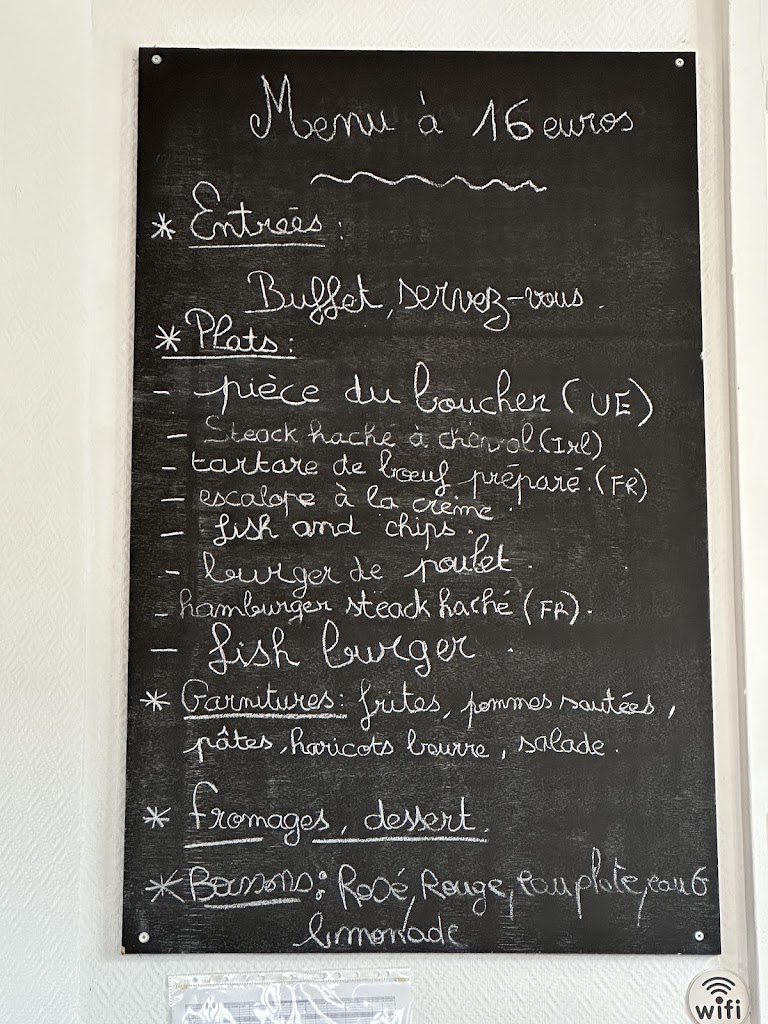 Menu à 16 euros
* Entrées :
Buffet, servez-vous.
* Plats :
- pièce du boucher (UE)
- Steack haché à cheval (Irl)
- tartare de bœuf préparé. (FR)
- escalope à la crème.
- fish and chips.
- burger de poulet.
- hamburger steack haché (FR).
- fish burger.
* Garnitures : frites, pommes sautées,
pâtes, haricots beurre, salade.
* Fromages, dessert.
* Boissons : Rosé, Rouge, eau plate, eau G
limonade
wifi